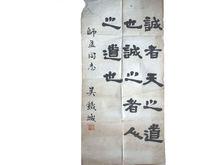 誠者天之道
也誠之者人
之道也
師孟同志
吳鐵城